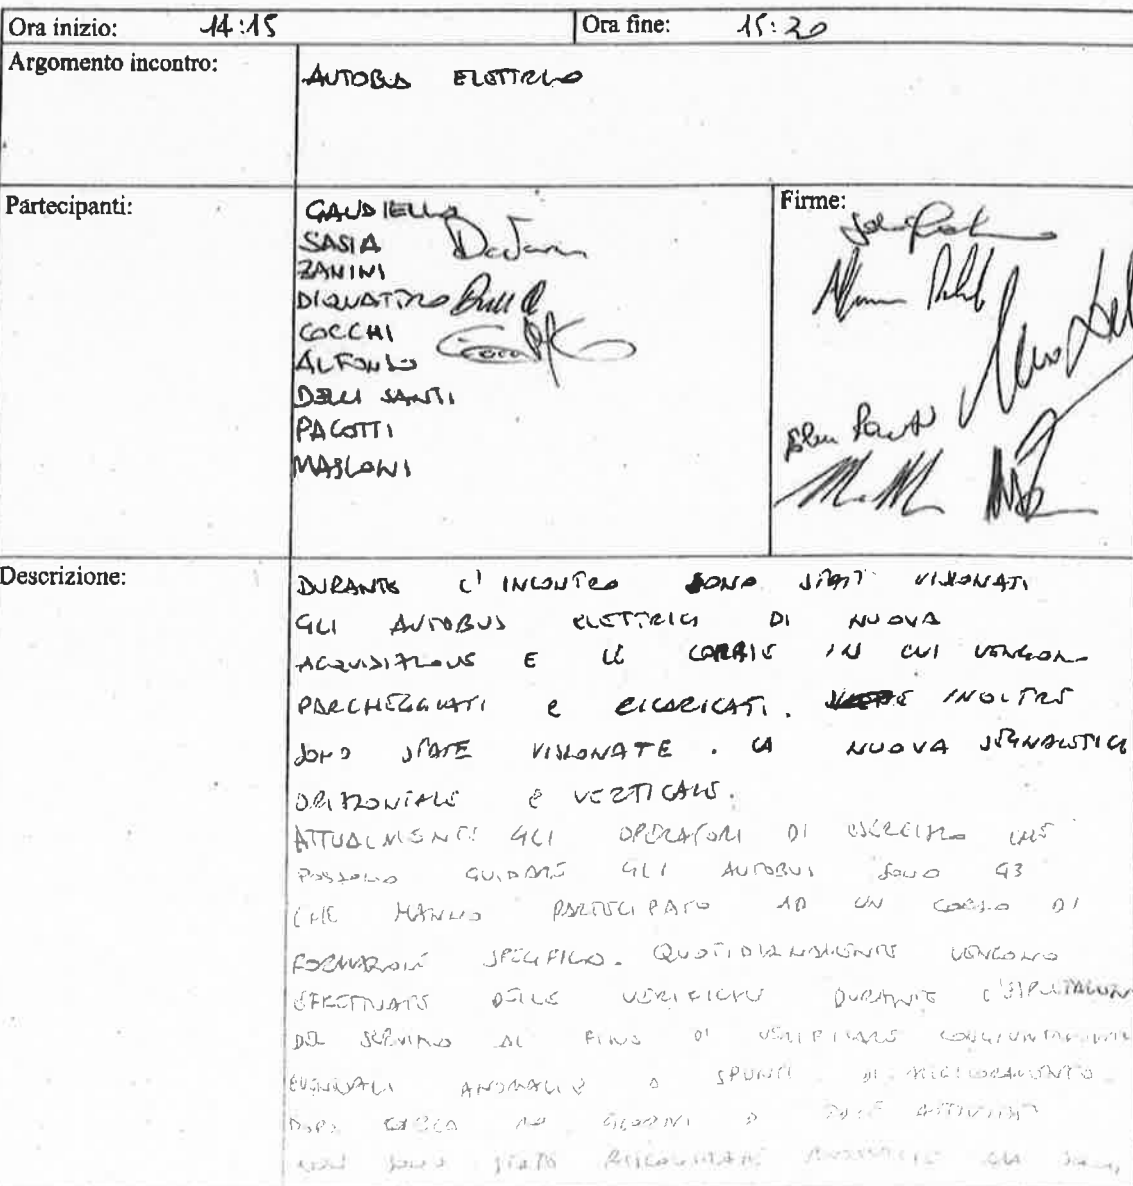 Ora inizio: 14:15 Ora fine: 15:20
Argomento incontro: AUTOBUS ELETTRICO
Partecipanti: Firme:
GAUDIELLO
SASIA
ZANINI
DIQUATTRO
COCCHI
ALFONSO
DELLI SANTI
PACOTTI
MASLONI
Descrizione: DURANTE L'INCONTRO SONO STATI VISIONATI
GLI AUTOBUS ELETTRICI DI NUOVA
ACQUISIZIONE E LE CORSIE IN CUI VENGONO
PARCHEGGIATI E RICARICATI. INOLTRE
SONO STATE VISIONATE . LA NUOVA SEGNALETICA
ORIZZONTALE E VERTICALE.
ATTUALMENTE GLI OPERATORI DI ESERCIZIO CHE
POSSONO GUIDARE GLI AUTOBUS SONO 93
CHE HANNO PARTECIPATO AD UN CORSO DI
FORMAZIONE SPECIFICO. QUOTIDIANAMENTE VENGONO
EFFETTUATE DELLE VERIFICHE DURANTE L'
DEL SERVIZIO AL FINE DI VERIFICARE CONGIUNTAMENTE
EVENTUALI ANOMALIE O SPUNTI DI MIGLIORAMENTO
DOPO CIRCA GIORNI DI ATTIVITÀ
NON SONO STATE RISCONTRATE